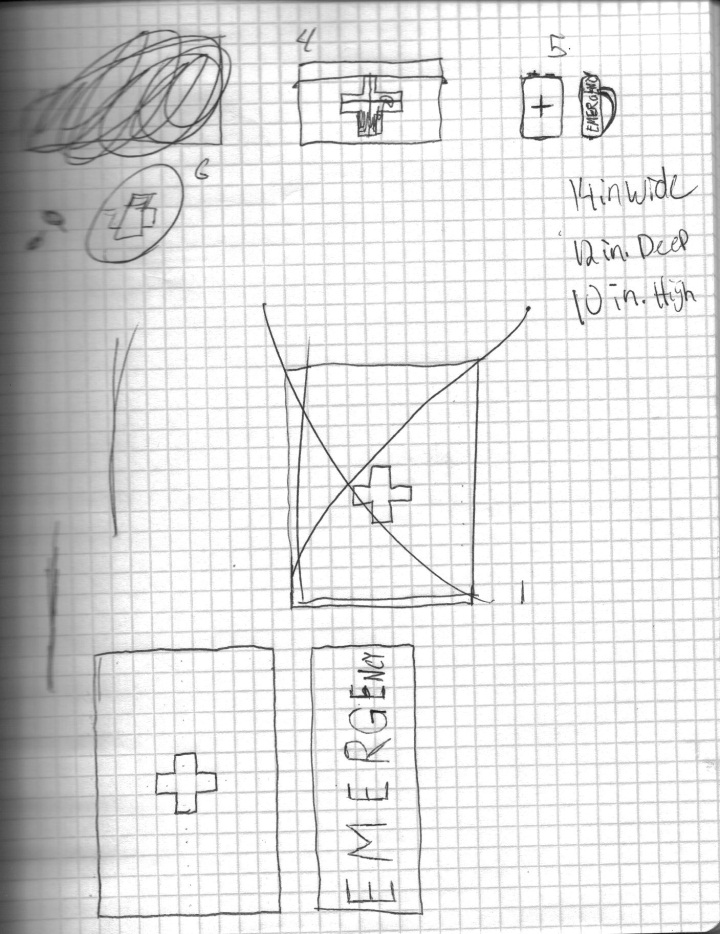 4
5
EMERGENCY
6
14 in Wide
12 in. Deep
10 in. High
1
EMERGENCY